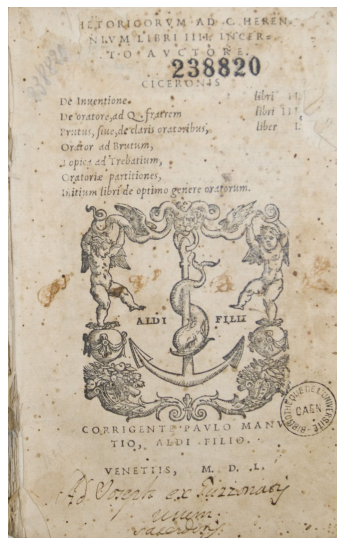 HETORICORVM AD C. HEREN
NIVM LIBRI IIII INCER-
TO AVCTORE.
238820
CICERONIS
De Inuentione. libri II.
De oratore, ad Q. fratrem libri III.
Brutus, siue, de claris oratoribus, liber I.
Orator ad Brutum,
Topica ad Trebatium,
Oratoriæ partitiones,
Initium libri de optimo genere oratorum.
ALDI FILII
BIBLIOTHEQUE DE L'UNIVERSITE
CAEN
CORRIGENTE PAVLO MANV
TIO, ALDI FILIO.
VENETIIS, M. D. L.
Joseph ex